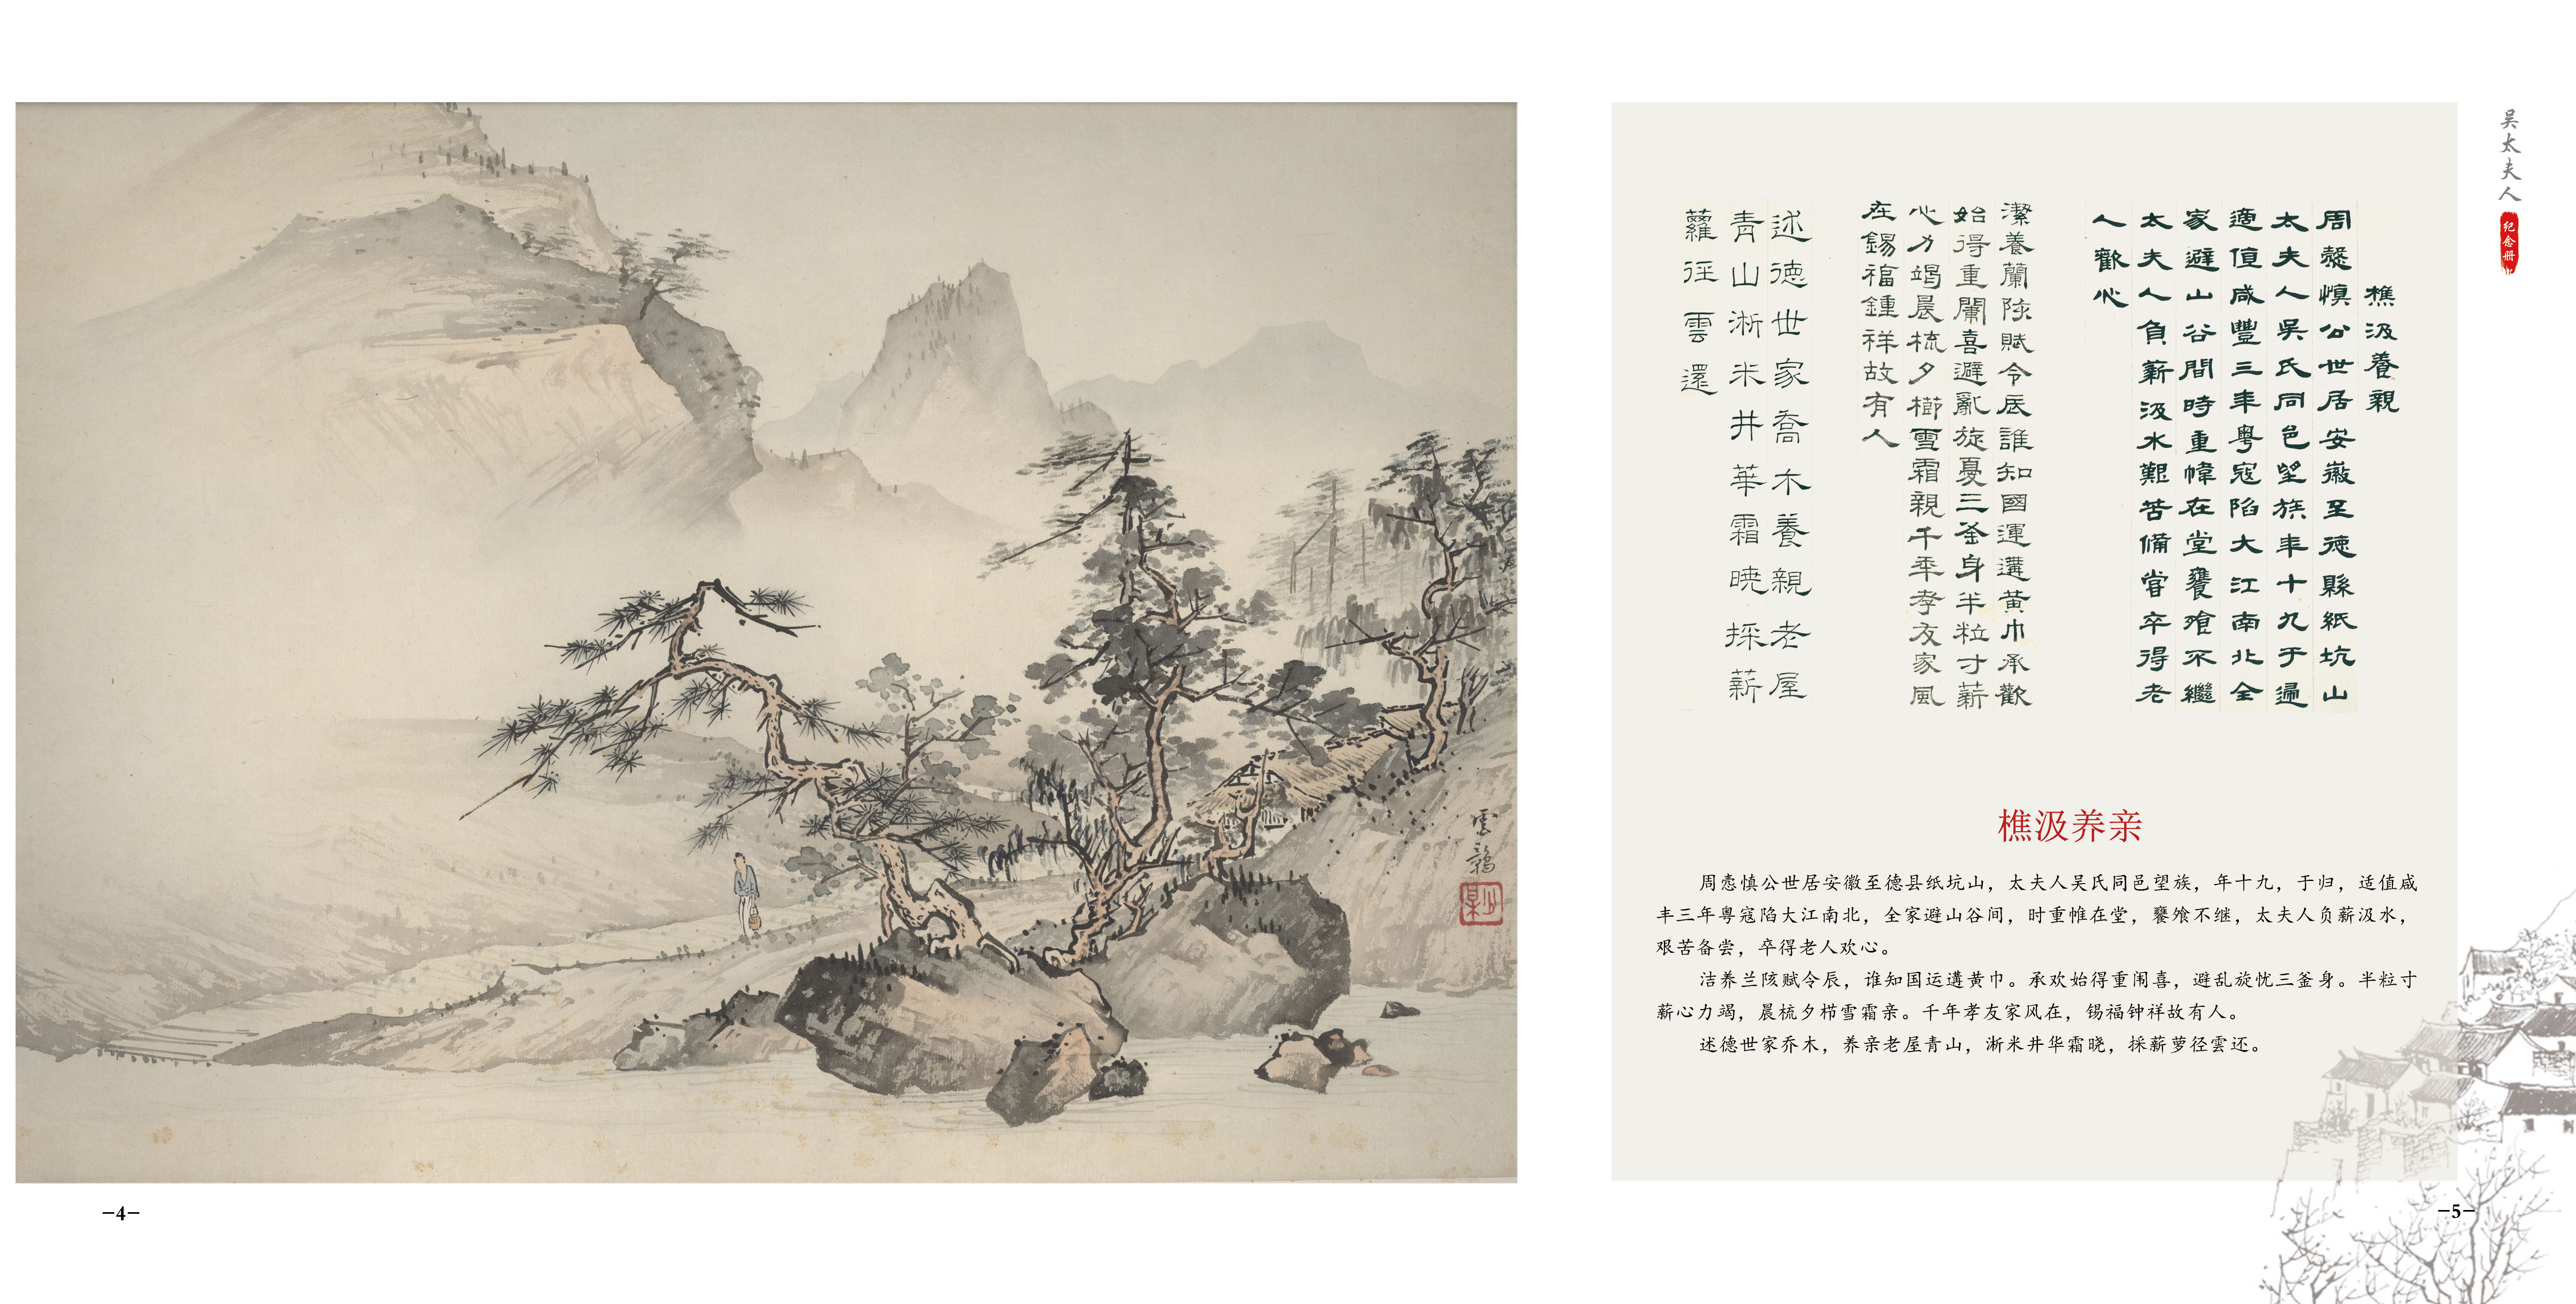 -4-
吴太夫人
纪念册
樵汲養親
周慤慎公世居安徽至德縣紙坑山
太夫人吳氏同邑望族年十九于歸
適值咸豐三年粵寇陷大江南北全
家避山谷間時重幃在堂饔飧不繼
太夫人負薪汲水艱苦備嘗卒得老
人歡心
潔養蘭陔賦令辰誰知國運遘黃巾承歡
始得重闈喜避亂旋憂三釜身半粒寸薪
心力竭晨梳夕櫛雪霜親千年孝友家風
在錫福鍾祥故有人
述德世家喬木養親老屋
青山淅米井華霜曉採薪
蘿徑雲還
樵汲养亲
周悫慎公世居安徽至德县纸坑山，太夫人吴氏同邑望族，年十九，于归，适值咸
丰三年粤寇陷大江南北，全家避山谷间，时重帷在堂，饔飨不继，太夫人负薪汲水，
艰苦备尝，卒得老人欢心。
洁养兰陔赋令辰，谁知国运遘黄巾。承欢始得重闹喜，避乱旋忧三釜身。半粒寸
薪心力竭，晨梳夕栉雪霜亲。千年孝友家风在，锡福钟祥故有人。
述德世家乔木，养亲老屋青山，淅米井华霜晓，採薪萝径雲还。
-5-